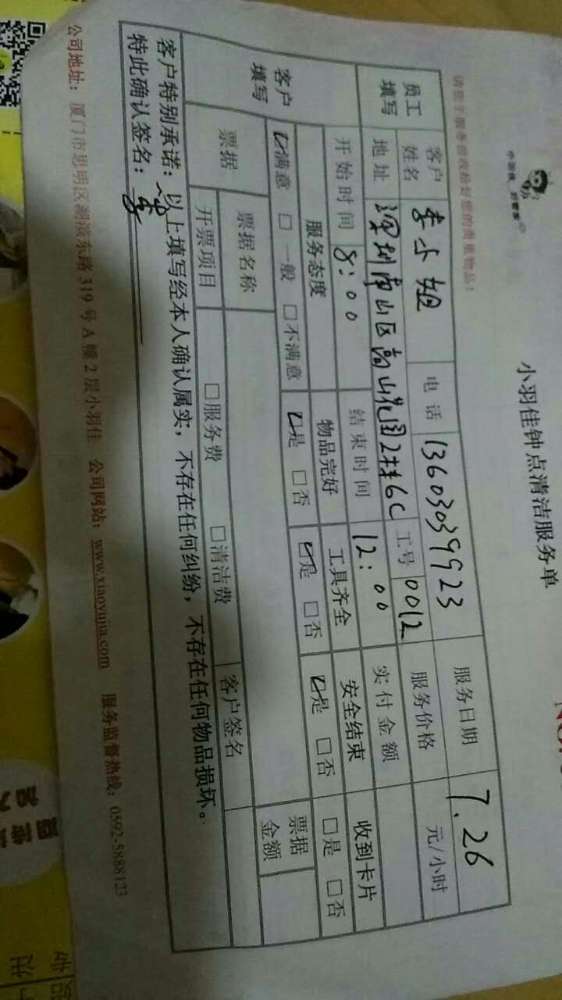 小羽佳钟点清洁服务单
小羽佳，好管家
员工填写 客户姓名 李小姐 电话 13603039923 服务日期 7.26
地址 深圳南山区南山花园2栋6C 工号 0012 服务价格 元/小时
开始时间 8:00 结束时间 12:00 实付金额
客户填写 服务态度 物品完好 工具齐全 安全结束 收到卡片
☑满意 □一般 □不满意 ☑是 □否 ☑是 □否 ☑是 □否 □是 □否
票据 票据名称 客户签名 票据金额
开票项目 □服务费 □清洁费
客户特别承诺：以上填写经本人确认属实，不存在任何纠纷，不存在任何物品损坏。
特此确认签名：李
公司地址：厦门市思明区湖滨东路319号A幢2层小羽佳 公司网站：www.xiaoyujia.com 服务监督热线：0592-5888123